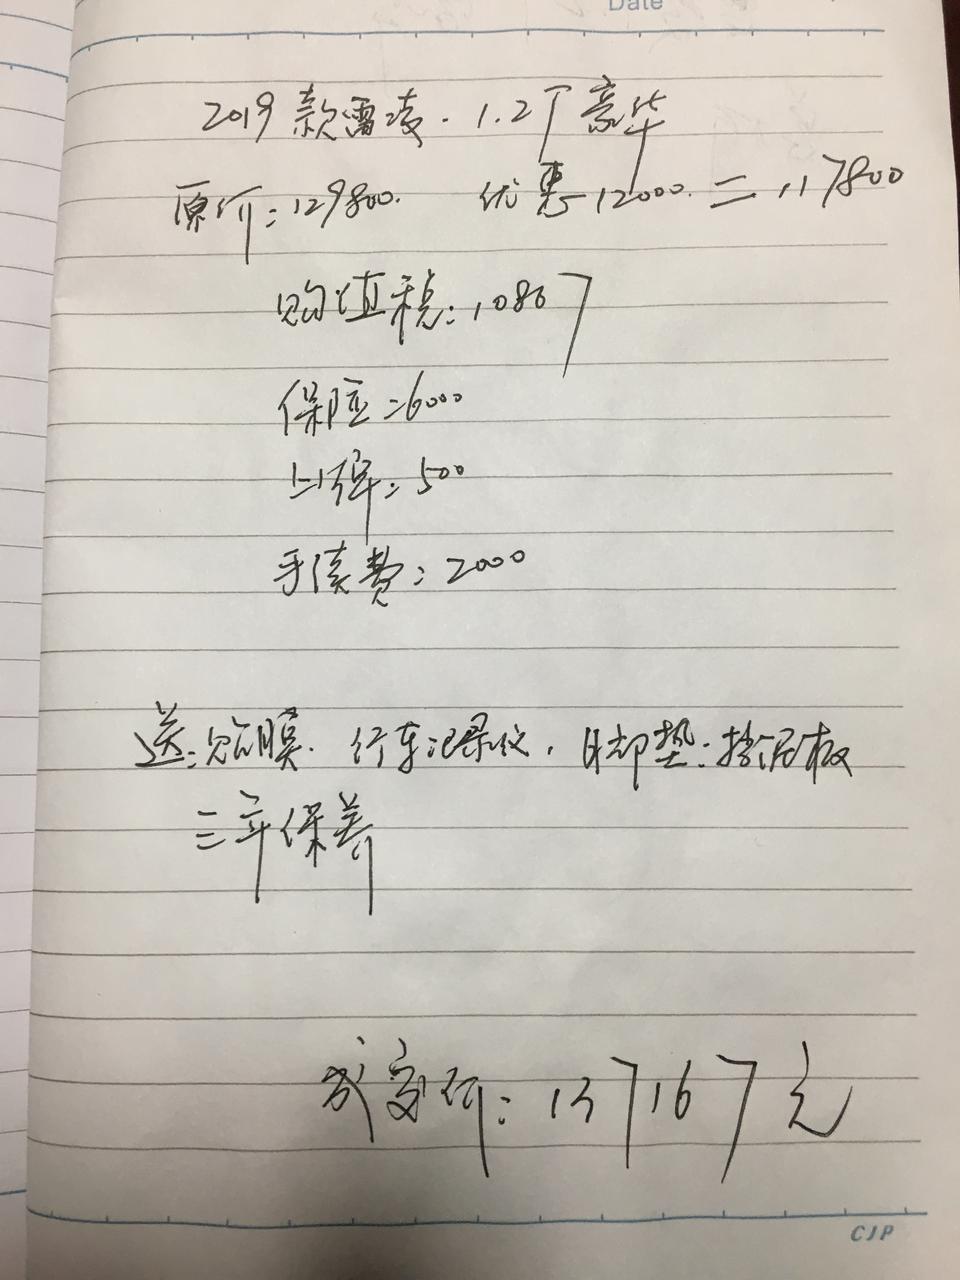 Date
2019款雷凌.1.2T豪华
原价:129800. 优惠12000.=117800
购值税:10867
保险:6000
上牌:500
手续费:2000
送:贴膜.行车记录仪.脚垫.挡泥板
三年保养
成交价:137167元
CJP